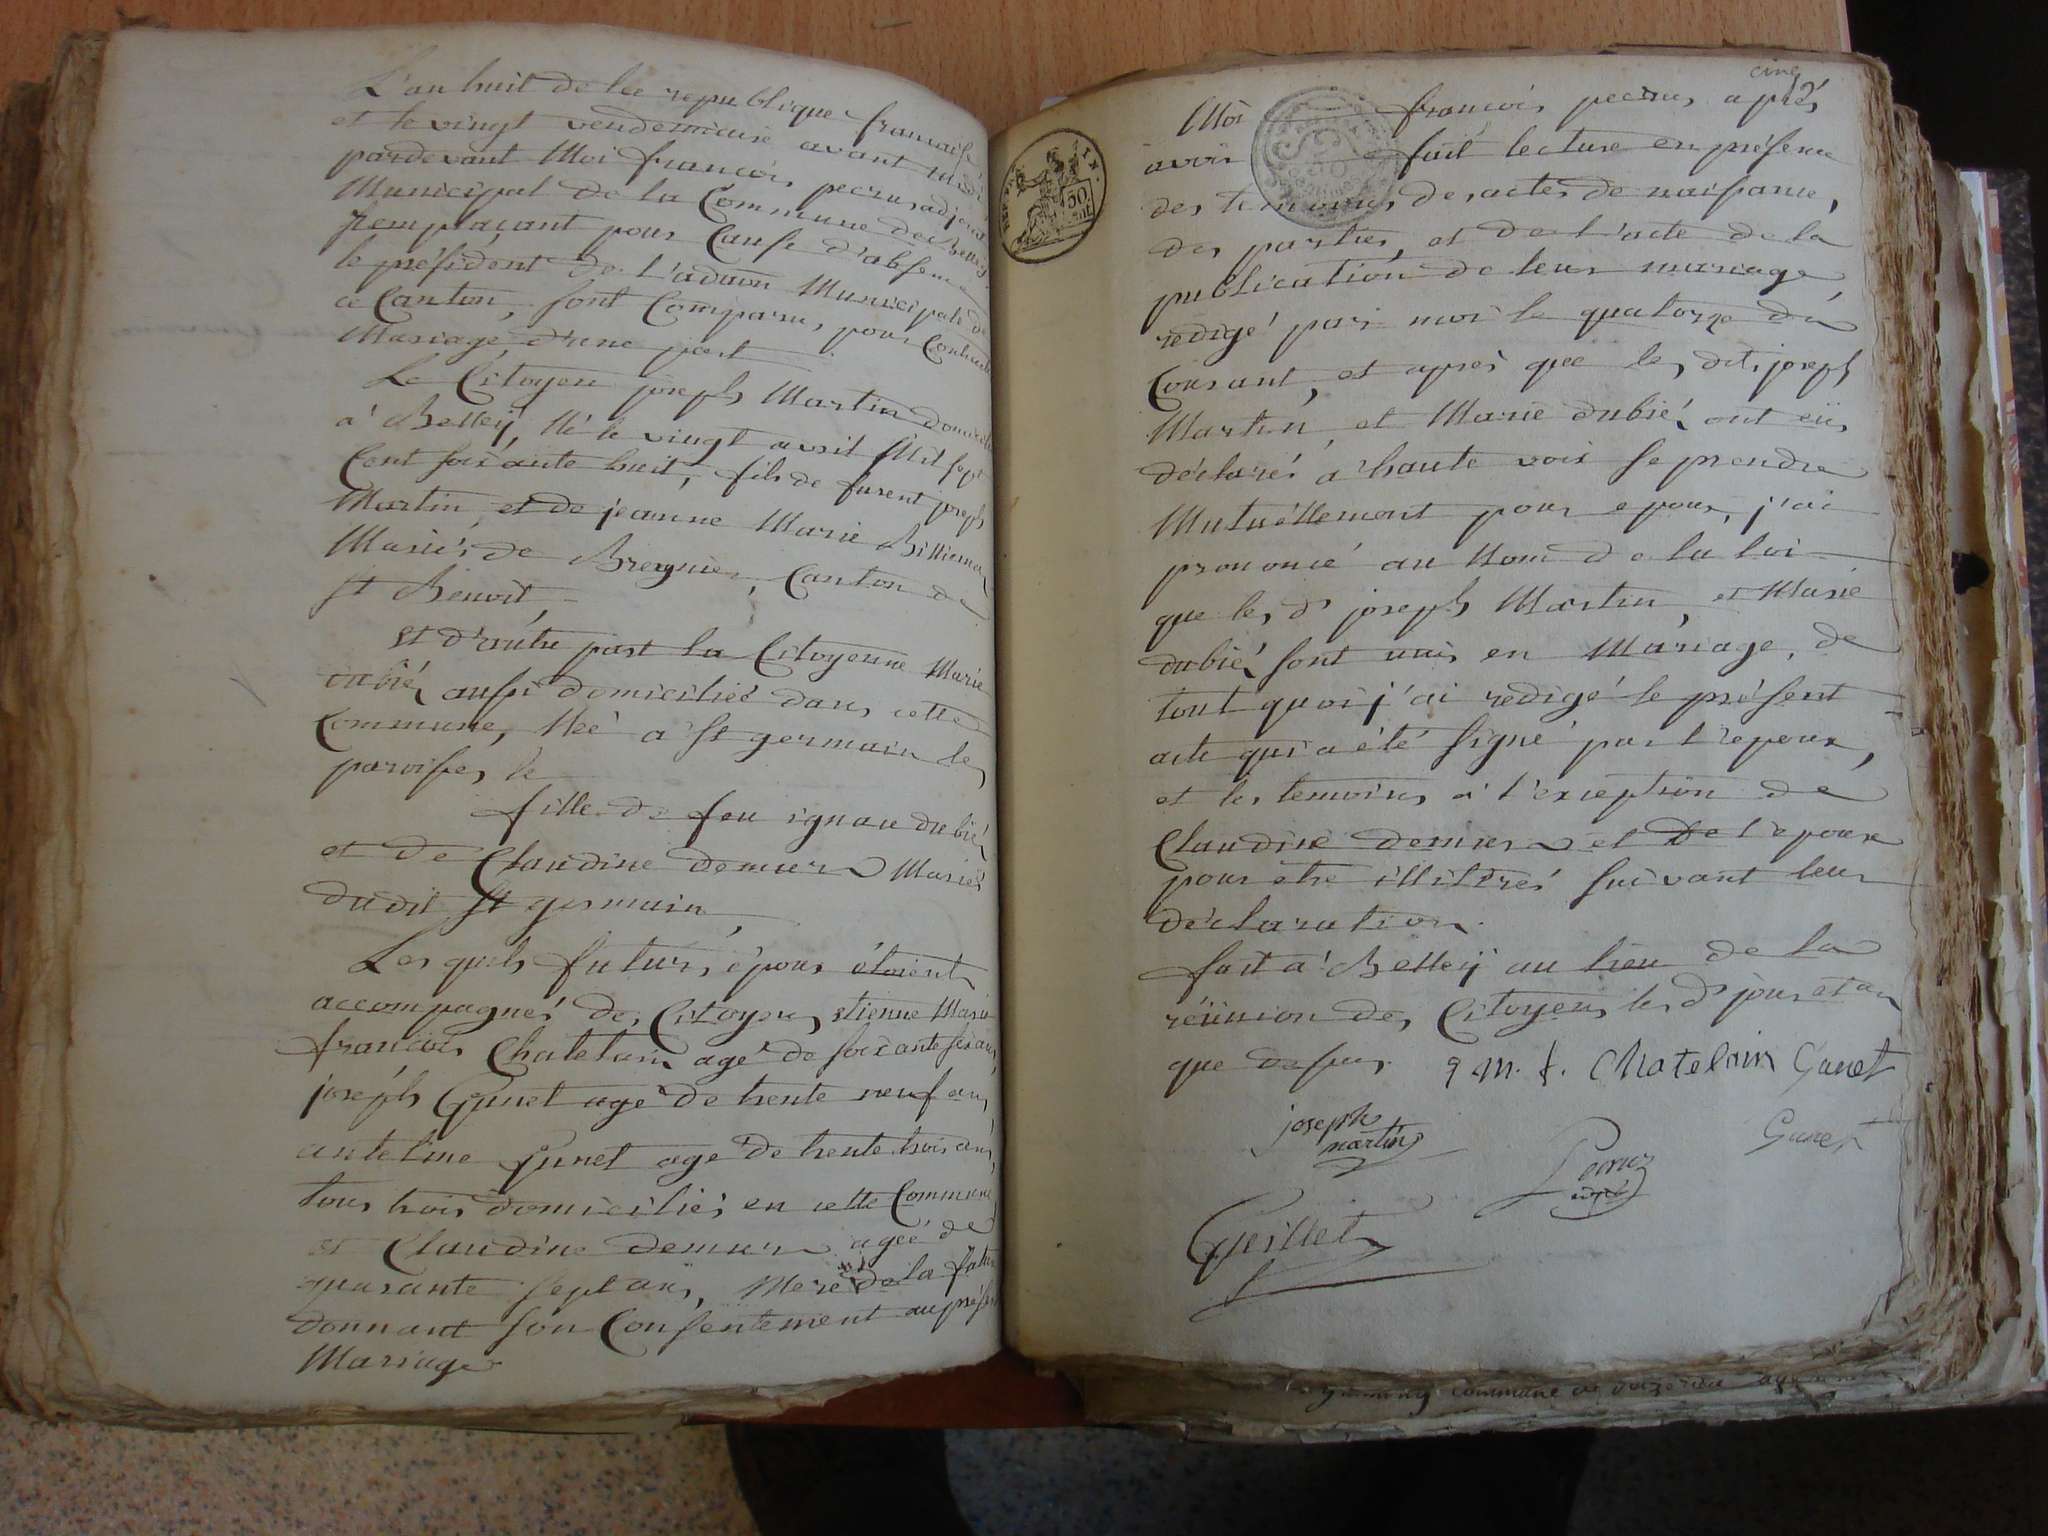 L'an huit de la republique francaise
et le vingt vendemiaire avant midi
pardevant Moi francois pecrus adjoint
Municipal de la Commune de Belley
Remplaçant pour Cause d'absence
le président de l'adãon Municipale de
ce Canton, sont Comparus, pour Contracter
Mariage d'une part
Le Citoyen joseph Martin domicilié
à Belleÿ, Né le vingt avril Mil sept
Cent soixante huit, fils de furent joseph
Martin, et de jeanne Marie Billiemaz
Mariés de Bregnier, Canton de
st Benoit,
et d'autre part la Citoyenne Marie
dubié, aussi domiciliée dans cette
Commune, Née a st germain les
paroisses, le
fille de feu ignace dubié
et de Claudine demeure Mariés
dudit st germain
Les quels futurs époux étoient
accompagnés des Citoyens, etienne Marie
francois Chatelain agé de soixante six ans,
joseph Gunet agé de trente neuf ans,
antelme Gunet agé de trente trois ans,
tous trois domiciliés en cette Commune
et Claudine demeure agée de
quarante sept ans, Mere de la future
donnant son Consentement au présent
Mariage
cinq
Moi francois pecrus, après
avoir fait lecture en présence
des temoins des actes de naissance,
des parties, et de l'acte de la
publication de leur mariage
redigé par moi le quatorze du
Courant, et après que les dits joseph
Martin, et Marie dubié, ont eüs
déclarés à haute voix se prendre
Mutuéllement pour epoux, j'ai
prononcé au Nom de la loi
que les d joseph Martin, et Marie
dubié, sont unis en Mariage, de
tout quoi j'ai redigé le présent
acte qui a été signé par l'epoux,
et les temoins à l'exception de
Claudine demeure et de l'epouse
pour etre illitérés suivant leur
déclaration.
fait a Belleÿ au lieu de la
réünion des Citoyens les d jour et an
que dessus. E. M. f. Chatelain Gunet
joseph
martin
Gunet
Pecruz
adjt
Guillet
commune de